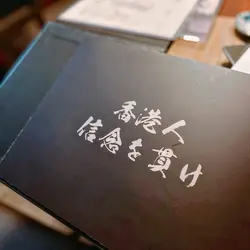 香港人
信念を貫け